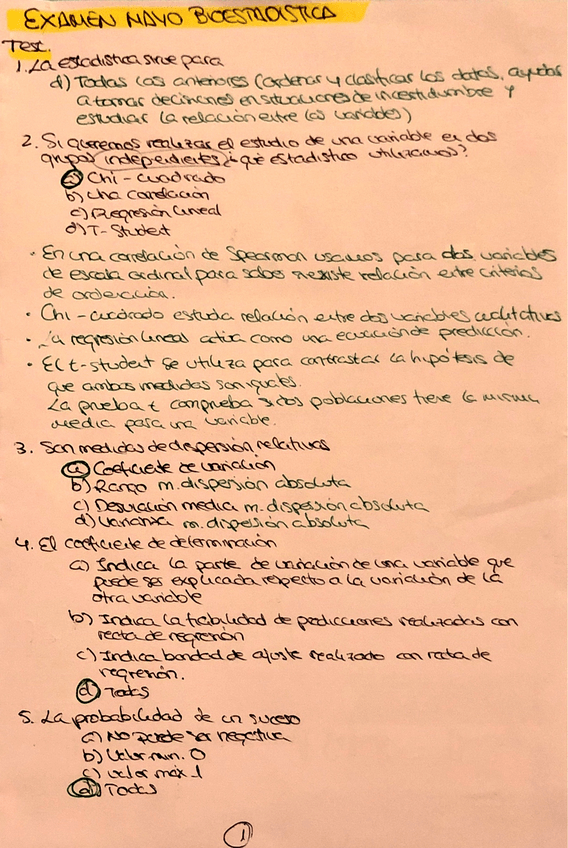 EXAMEN MAYO BIOESTADISTICA
Test.
1. La estadistica sirve para
d) Todas las anteriores (ordenar y clasificar los datos, ayudar
a tomar decisiones en situaciones de incertidumbre y
estudiar la relación entre las variables)
2. Si queremos realizar el estudio de una variable en dos
grupos independientes ¿qué estadístico utilizamos?
a) Chi-cuadrado
b) Una correlación
c) Regresión lineal
d) T-Student
• En una correlación de Spearman usamos para dos variables
de escala ordinal para saber si existe relación entre criterios
de ordenación.
• Chi-cuadrado estudia relación entre dos variables cualitativas
• La regresión lineal actúa como una ecuación de predicción.
• El t-student se utiliza para contrastar la hipótesis de
que ambas medidas son iguales.
La prueba t comprueba si dos poblaciones tiene la misma
media para una variable.
3. Son medidas de dispersión relativas
a) Coeficiente de variación
b) Rango m. dispersión absoluta
c) Desviación media m. dispersión absoluta
d) Varianza m. dispersión absoluta
4. El coeficiente de determinación
a) Indica la parte de variación de una variable que
puede ser explicada respecto a la variación de la
otra variable
b) Indica la fiabilidad de predicciones realizadas con
recta de regresión
c) Indica bondad de ajuste realizado con recta de
regresión.
d) Todas
5. La probabilidad de un suceso
a) No puede ser negativa
b) Valor min. 0
c) valor máx 1
d) Todas
1